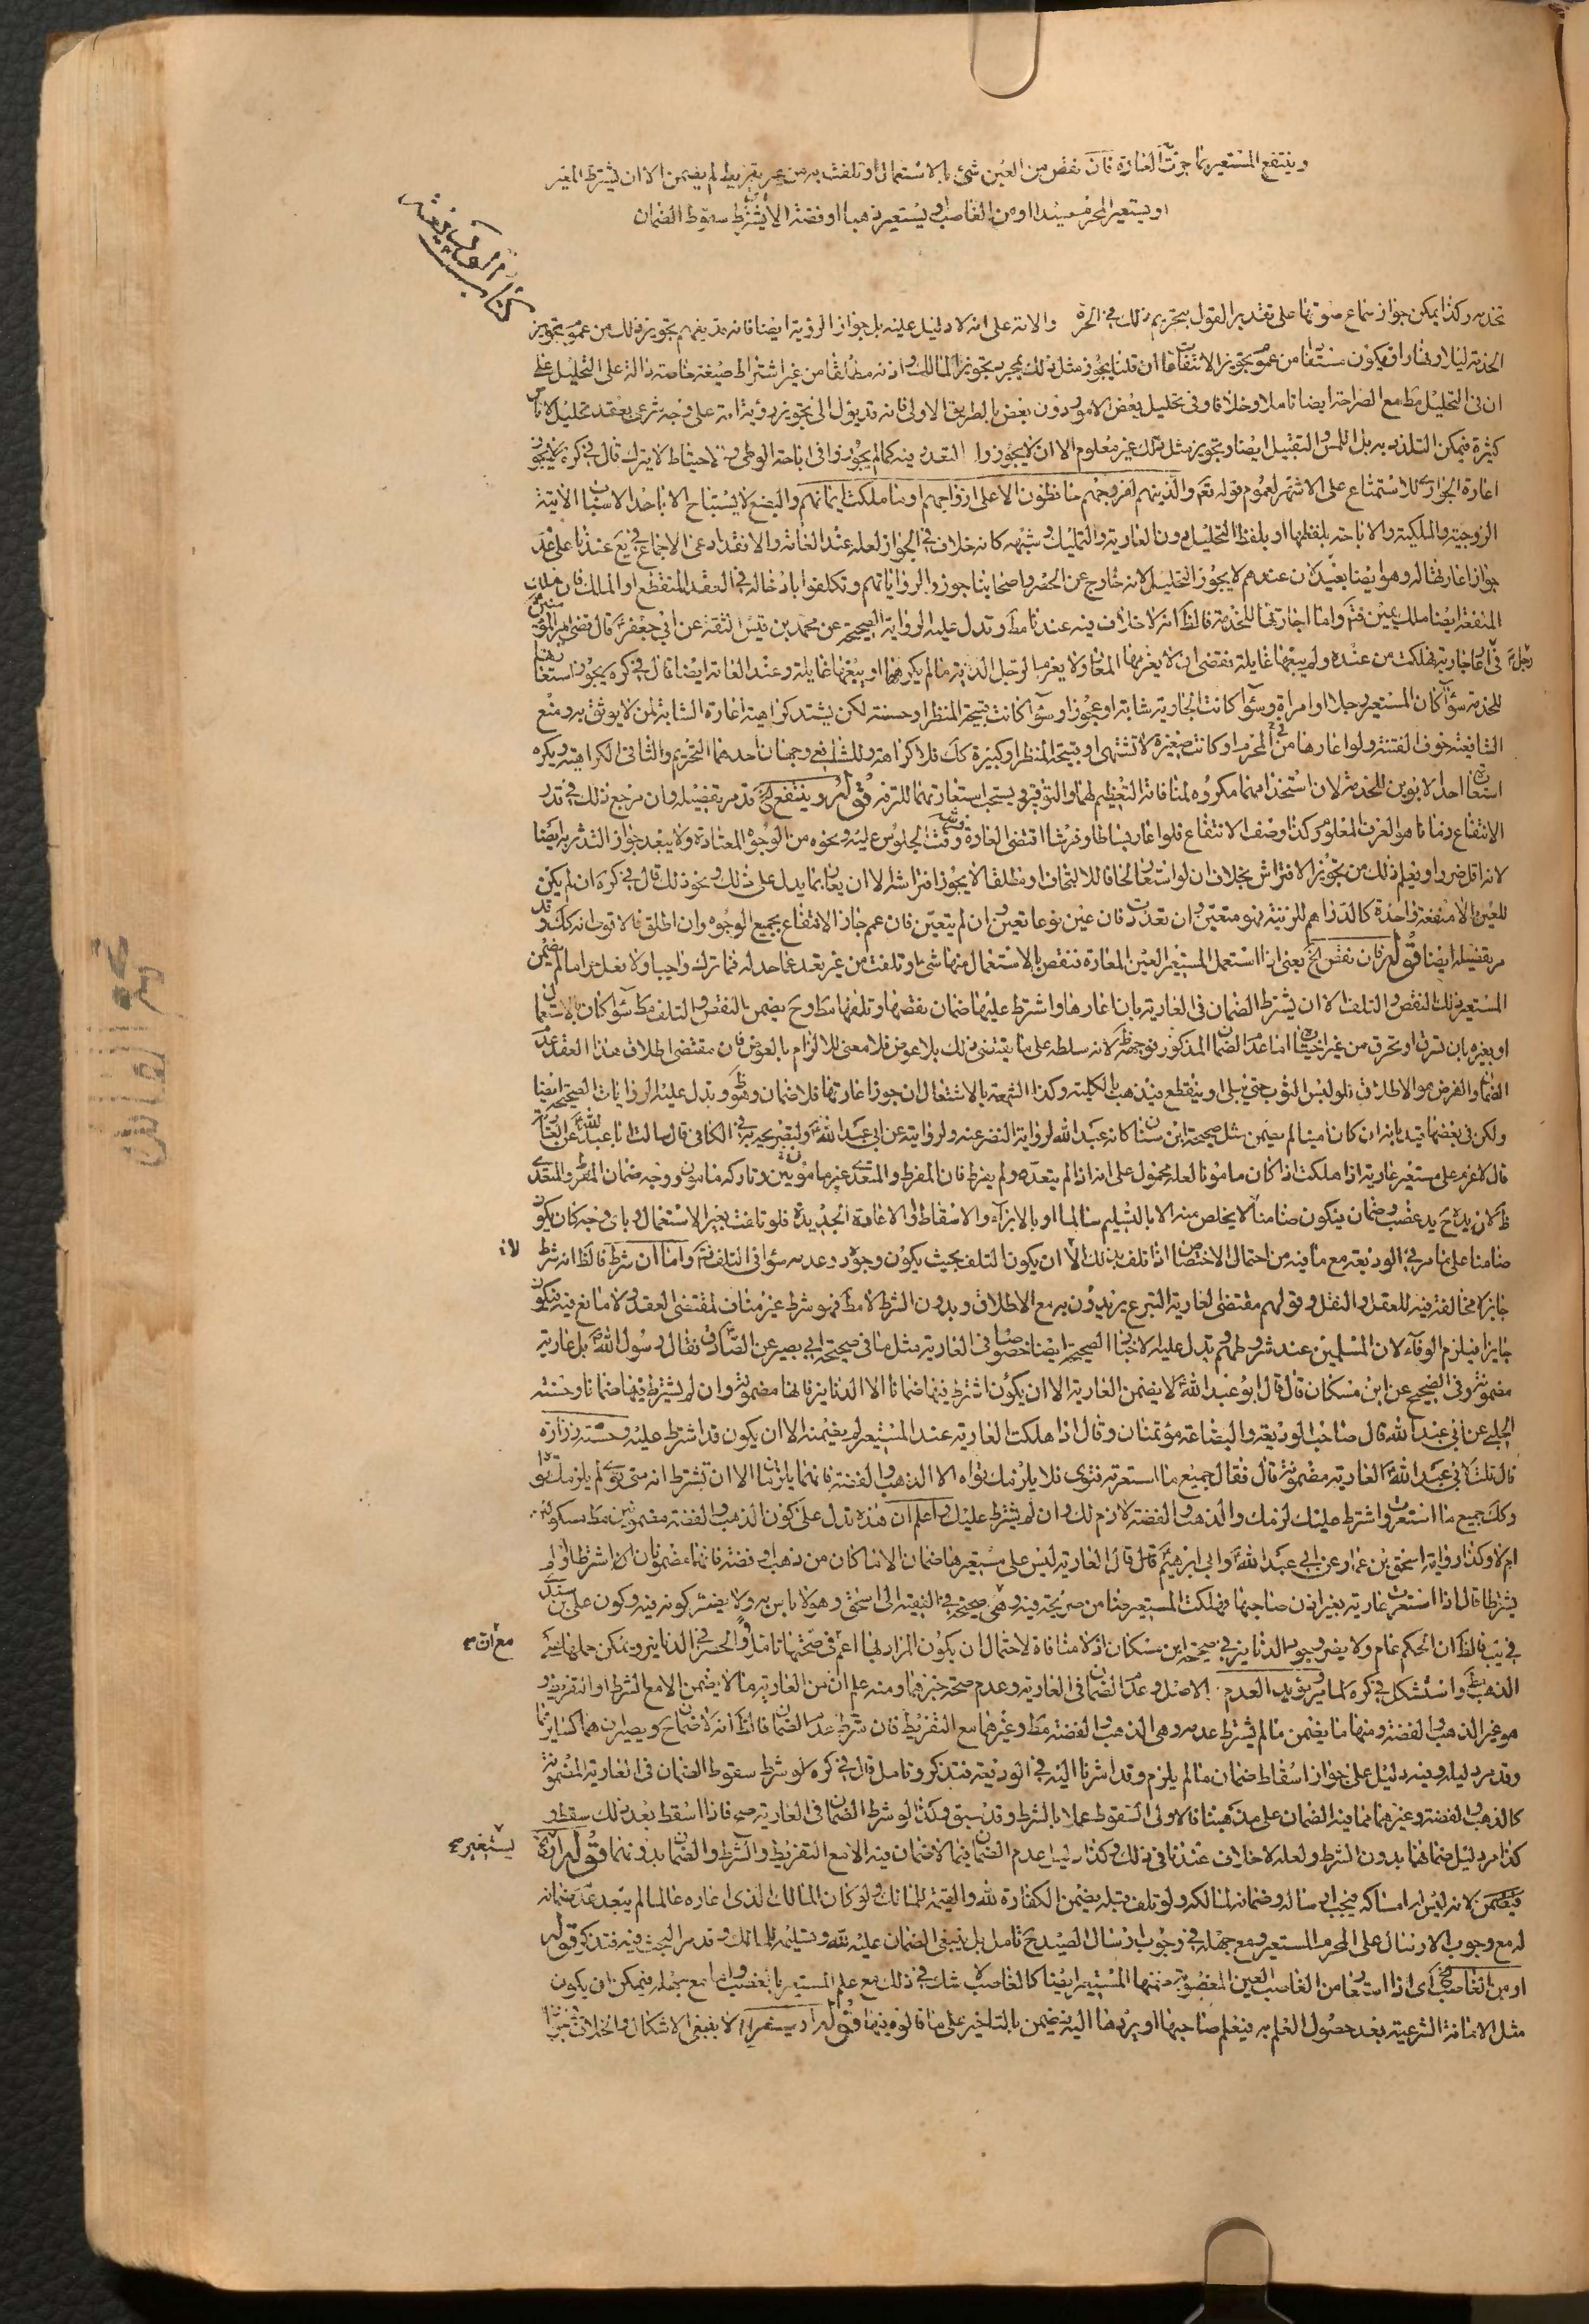 وينتفع المستعير بما جرت العادة فان نقص من العين شئ بالاستعمال او تلفت به من غير تفريط لم يضمن الا ان يشترط المعير
او يستعير المحرم صيدا او من الغاصب او يستعير ذهبا او فضة الا ان يشترط سقوط الضمان
كتاب الوديعة
تخدمه وكذا يمكن جواز سماع صوتها على تقدير القول بتحريم ذلك في الحرة والامة على انه لا دليل عليه بل جواز الرؤية ايضا فانه قد يفهم تجويز ذلك من عموم تجويز
الخدمة ليلا ونهارا فيكون مستفادا من عموم تجويز الانتفاعات ان قلنا يجوز مثل ذلك بمجرد تجويز المالك واذنه مطلقا من غير اشتراط صيغة خاصة دالة على التحليل على
ان في التحليل مط مع الصراحة ايضا تاملا وخلافا وفي تحليل بعض الامور دون بعض بالطريق الاولى فانه قد يؤل الى تجويز رؤية امة على وجه شرعي بعقد تحليل لاناس
كثيرة فيمكن التلذذ به بل اللمس والتقبيل ايضا وتجويز مثل ذلك غير معلوم الا ان لا يجوزوا التعدد فيه كما لم يجوزوا في اباحة الوطى والاحتياط لا يترك قال في كره لا يجوز
اعارة الجواري للاستمتاع على الاشهر لعموم قوله تعم والذين هم لفروجهم حافظون الا على ازواجهم او ما ملكت ايمانهم والبضع لا يستباح الا باحد الاسباب الآتية
الزوجية والملكية والاباحة بلفظها او بلفظ التحليل دون العارية والتمليك وشبهه كانه خلاف في الجواز لعله عند العامة والا فقد ادعى الاجماع في يع عندنا على عدم
جواز اعارتها له وهو ايضا بعيد لان عندهم لا يجوز التحليل لانه خارج عن الحصر واصحابنا جوزوا لرواياتهم وتكلفوا بادخاله في العقد المنقطع او الملك فان ملك
المنفعة ايضا ملك يمين فتم واما اجارتها للخدمة فالظ انه لا خلاف فيه عندنا مط وتدل عليه الرواية الصحيحة عن محمد بن قيس الثقة عن ابي جعفر ع قال قضى امير المؤمنين
في رجل اعار جارية فهلكت من عنده ولم يبغها غايلة فقضى ان لا يغرمها المعار ولا يغرم الرجل الدابة ما لم يكرهها او يبغها غايلة وعند العامة ايضا قال في كره يجوز استعارتها
للخدمة سواء كان المستعير رجلا او امراة وسواء كانت الجارية شابة او عجوزا وسواء كانت قبيحة المنظر او حسنة لكن يشتد كراهية اعارة الشابة لمن لا يوثق به ومنع
الشافعية خوف الفتنة ولو اعارها من المحرم او كانت صغيرة لا تشتهى او قبيحة المنظر او كبيرة كك فلا كراهة وللشافعي وجهان احدهما التحريم والثاني الكراهية ويكره
استعارة احد الابوين للخدمة لان استخدامهما مكروه لمنافاته التعظيم لهما والتوقير ويستحب استعارتهما للترفه قوله وينتفع الخ قد مر تفصيله وان مرجع ذلك في قدر
الانتفاع وزمانه هو العرف المعلوم وكذا وصف الانتفاع فلو اعار بساطا وفرشا اقتضى العادة وقت الجلوس عليه ونحوه من الوجوه المعتادة ولا يبعد جواز التدثر به ايضا
لانه اقل ضررا ويعلم ذلك من تجويز الافتراش بخلاف ان لو استعار لحافا للالتحاف او مطلقا لا يجوز افتراشه الا ان يعار بما يدل على ذلك ونحو ذلك قال في كره ان لم يكن
للعين الا منفعة واحدة كالدراهم للزينة فهو متعين وان تعددت فان عين نوعا تعين وان لم يتعين فان عمم جاز الانتفاع بجميع الوجوه وان اطلق فالاقوى انه كك وقد
مر تفصيله ايضا قوله فان نقص الخ يعني اذا استعمل المستعير العين المعارة فنقص بالاستعمال منها شئ او تلفت من غير تعد عما حد له فما ترك واجبا ولا فعل حراما لم يضمن
المستعير ذلك النقص والتلف الا ان يشترط الضمان في العارية بان اعارها واشترط عليها ضمان نقصها وتلفها مط وح يضمن النقص والتلف مط سواء كان بالاستعمال
او بغيره بان سرق او تحرق من غير اختياره اما عدم الضمان المذكور فوجهه ظ لانه سلطه على ما يقتضي ذلك بلا عوض فلا معنى للالزام بالعوض فان مقتضى اطلاق هذا العقد عدم
الضمان والفرض هو الاطلاق فلو لبس الثوب حتى يبلى او ينقطع فيذهب بالكلية وكذا الشمعة بالاشتعال ان جوز اعارتها فلا ضمان وهو ظ وتدل عليه الروايات الصحيحة ايضا
ولكن في بعضها قيد بانه ان كان امينا لم يضمن مثل صحيحة ابن سنان كانه عبد الله لرواية النضر عنه ولروايته عن ابي عبد الله ع ولتصريحه به في الكافي قال سالت ابا عبد الله ع عن العارية
قال لا غرم على مستعير عارية اذا هلكت اذا كان مامونا لعله محمول على انه اذا لم يتعده ولم يفرط فان المفرط والمتعدي غير مامونين وتارك ما مامون ووجه ضمان المفرط والمتعدي
ظ لان يده ح يد غصب وضمان فيكون ضامنا لا يخلص منه الا بالتسليم سالما او بالابراء والاسقاط او الاعادة الجديدة فلو تلفت بغير الاستعمال وباي وجه كان يكون
ضامنا على ما مر في الوديعة مع ما فيه من احتمال الاختصاص اذا تلف بذلك الا ان يكون التلف بحيث يكون وجوده وعدمه سواء في التلف فتم واما ان شرط فالظ انه شرط
لا
جايز لا مخالفة فيه للعقل والنقل وقولهم مقتضى العارية التبرع يريدون به مع الاطلاق وبدون الشرط لا مط فهو شرط غير مناف لمقتضى العقد ولا مانع فيه فيكون
جايزا فيلزم الوفاء لان المسلمين عند شروطهم وتدل عليه الاخبار الصحيحة ايضا خصوصا في العارية مثل ما في صحيحة ابي بصير عن الصادق ع فقال رسول الله ص بل عارية
مضمونة وفي الصحيح عن ابن مسكان قال قال ابو عبد الله ع لا يضمن العارية الا ان يكون اشترط فيها ضمانا الا الدنانير فانها مضمونة وان لم يشترط فيها ضمانا وحسنة
الحلبي عن ابي عبد الله قال صاحب الوديعة والبضاعة مؤتمنان وقال اذا هلكت العارية عند المستعير لم يضمنه الا ان يكون قد اشترط عليه وحسنة زرارة
قال قلت لابي عبد الله ع العارية مضمونة قال فقال جميع ما استعرته فتوى فلا يلزمك تواه الا الذهب والفضة فانهما يلزمان الا ان تشترط انه متى توى لم يلزمك تواه
وكك جميع ما استعرت واشترط عليك لزمك والذهب والفضة لازم لك وان لم يشترط عليك واعلم ان هذه تدل على كون الذهب والفضة مضمونين مط مسكوكين
ام لا وكذا رواية اسحق بن عمار عن ابي عبد الله ع وابي ابرهيم ع قال قال العارية ليس على مستعيرها ضمان الا ما كان من ذهب او فضة فانهما مضمونان اشترطا او لم
يشترطا قال اذا استعرت عارية بغير اذن صاحبها فهلكت المستعير ضامن صريحة فيه وهي صحيحة في الفقيه الى اسحق وهو لا باس به ولا يضر كونه فيه وكون علي بن سندي
في يب فالظ ان الحكم عام ولا يضر وجود الدنانير في صحيحة ابن مسكان اذ لا منافاة لاحتمال ان يكون المراد بها اعم في صحتها تامل والحصر في الدنانير ويمكن حملها على
مع ان
الذهب مط واستشكل في كره لما مر ويؤيد العدم الاصل وعدم الضمان في العارية وعدم صحة خبر فيها ومنه علم ان من العارية ما لا يضمن الا مع الشرط او التفريط و
هو غير الذهب والفضة ومنها ما يضمن ما لم يشترط عدمه وهي الذهب والفضة مط وغيرها مع التفريط فان شرط عدم الضمان فالظ انه لا ضمان ح ويصيران هما كسايرها
وقد مر دليله وفيه دليل على جواز اسقاط ضمان ما لم يلزم وقد اشرنا اليه في الوديعة فتذكر وتامل قال في كره لو شرط سقوط الضمان في العارية المضمونة
كالذهب والفضة وغيرهما مما فيه الضمان على مذهبنا فالاولى السقوط عملا بالشرط وقد سبق وكذا لو شرط الضمان في العارية صح فاذا اسقط بعد ذلك سقط و
كذا مر دليل ضمانهما بدون الشرط ولعله لا خلاف عندنا في ذلك وكذا دليل عدم الضمان فيما لا ضمان فيه الا مع التفريط والشرط والضمان بدونهما قوله او يستعير
يستعير
فيضمن لانه ليس له امساكه فيجب ارساله وضمانه لمالكه ولو تلف قبله يضمن الكفارة لله والقيمة للمالك ولو كان المالك الذي اعاره عالما لم يبعد عدم ضمانه
له مع وجوب الارسال على المحرم المستعير ومع جهله في وجوب ارسال الصيد ح تامل بل ينبغي الضمان عليه لله وتسليمه للمالك وقد مر البحث فيه فتذكر قوله
او من الغاصب الخ اى اذا استعار من الغاصب العين المغصوبة ضمنها المستعير ايضا كالغاصب لا شك في ذلك مع علم المستعير بالغصب واما مع جهله فيمكن ان يكون
مثل الامانة الشرعية بعد حصول العلم به فيعلم صاحبها او يردها اليه فيضمن بالتاخير على ما قالوه فيها قوله او يستعير الخ لا ينبغي الاشكال والخلاف في